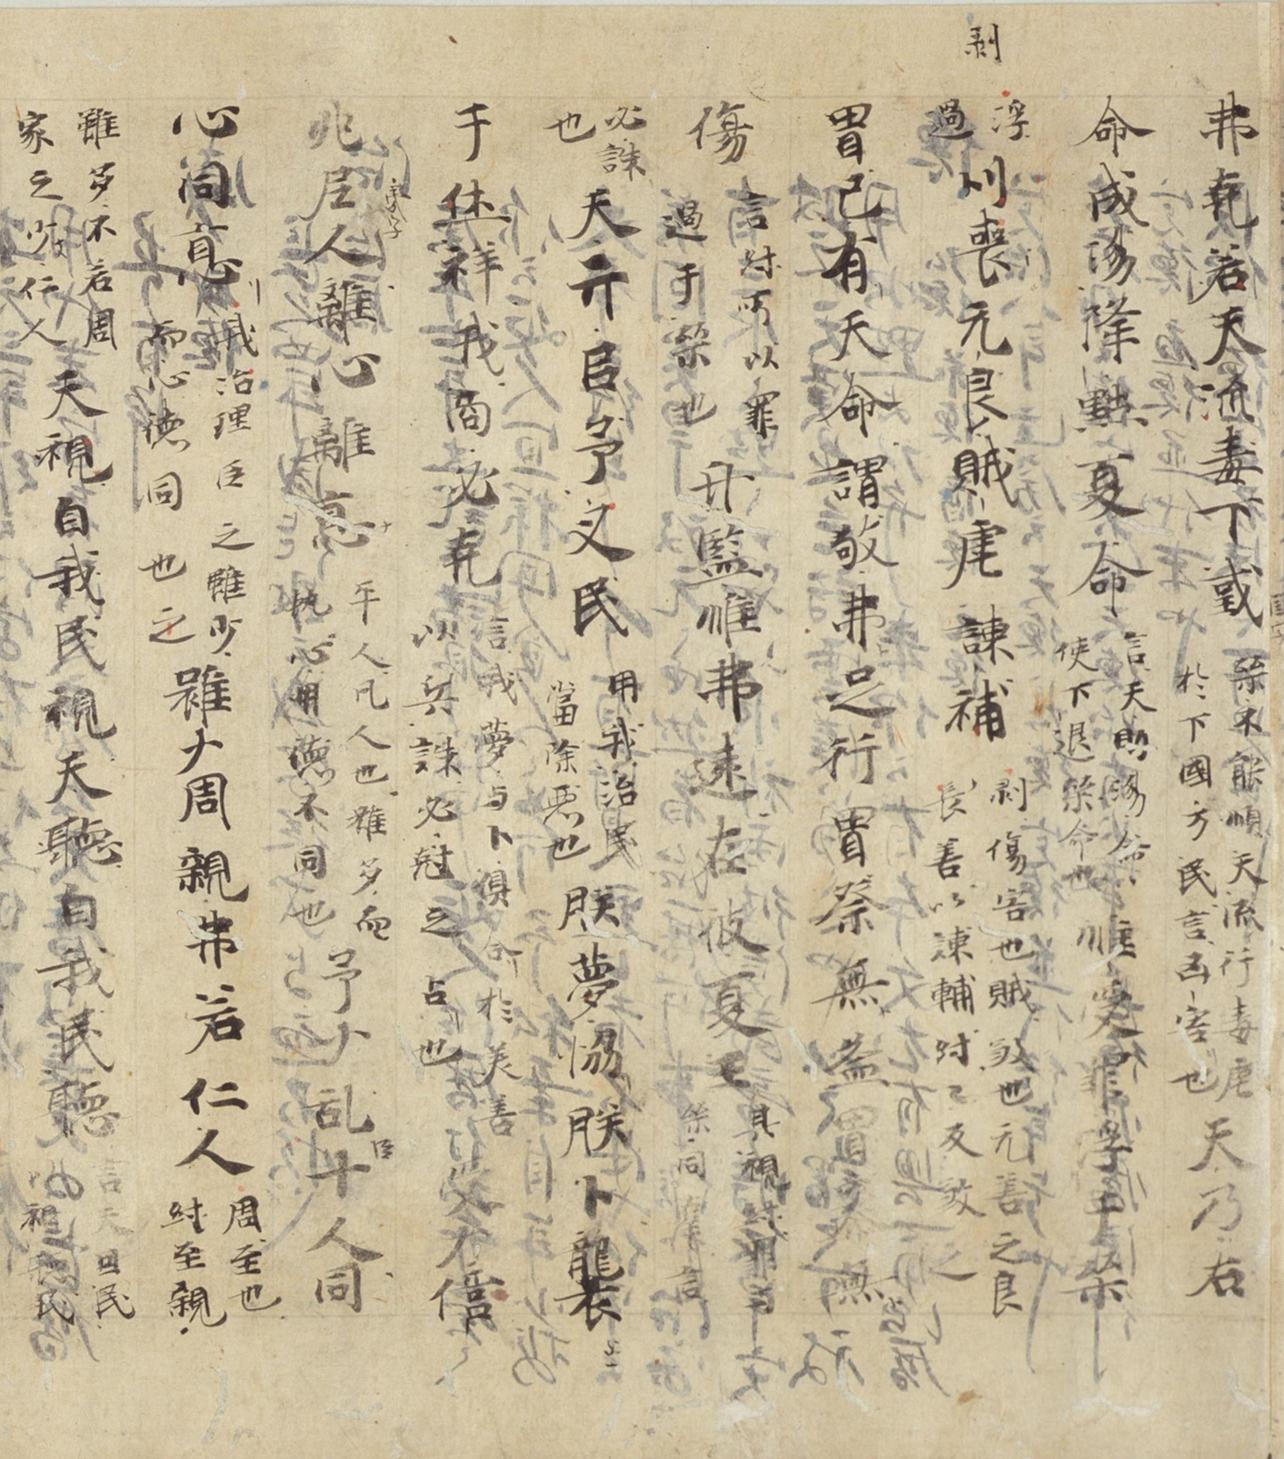 剥
弗克若天流毒下或桀不能順天流行毒虐於下國万民言凶害也天乃右
命成湯降黜夏命言天助湯命使下退桀命也惟受罪浮于桀
浮過刂喪元良賊虐諫補剥傷害也賊殺也元善之良長善以諫輔紂〻反殺之
胃己有天命謂敬弗足行胃祭無益胃㬥無
傷言紂所以罪過于桀也升監惟弗遠在彼夏王其視紂罪与桀同辜言
必誅也天亓㠯予乂民用我治民當除悪也朕夢協朕卜襲
于休祥我商必克言我夢与卜俱合於美善以兵誅必尅之占也
兆臣人離心離悳平人凡人也雖多而執心用德不同也予ナ乱十人同
臣
心同悳我治理臣之雖少而心德同也之雖ナ周親弗若仁人周至也紂至親
雖多不若周家之少仁人天視自我民視天聽自我民聽言天因民以視聽民